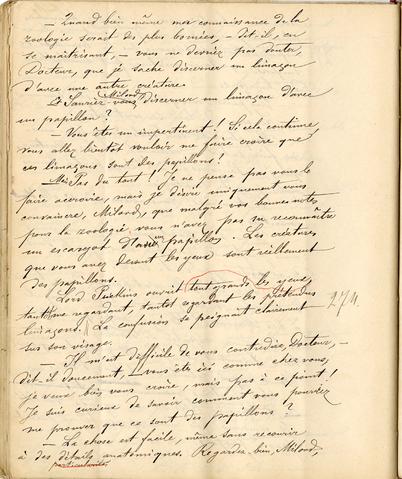 — Quand bien même mes connaissances de la
zoologie serait des plus bornées, — dit-il, en
se maîtrisant, — vous ne devriez pas douter,
Docteur, que je sache discerner un limaçon
d'avec une autre créature.
— Sauriez-vous Milord discerner un limaçon d'avec
un papillon?
— Vous êtes un impertinent! Si cela continue
vous allez bientôt vouloir me faire croire que
ces limaçons sont des papillons!
— Pas du tout! Je ne pense pas vous le
faire accroire, mais je désire uniquement vous
convaincre, Milord, que malgré vos bonnes notes
pour la zoologie vous n'avez pas su reconnaître
un escargot d'avec un papillon. Les créatures
que vous avez devant les yeux sont réellement
des papillons.
Lord Puckins ouvrit tout grands les yeux,
tantôt me regardant, tantôt regardant les prétendus
limaçons. La confusion se peignait clairement
sur son visage.
274.
— Il m'est difficile de vous contredire, Docteur, —
dit-il doucement, — vous êtes ici comme chez vous,
je veux bien vous croire, mais pas à ce point!
Je suis curieux de savoir comment vous pourriez
me prouver que ce sont des papillons?
— La chose est facile, même sans recourir
à des détails anatomiques. Regardez bien, Milord,
particularités